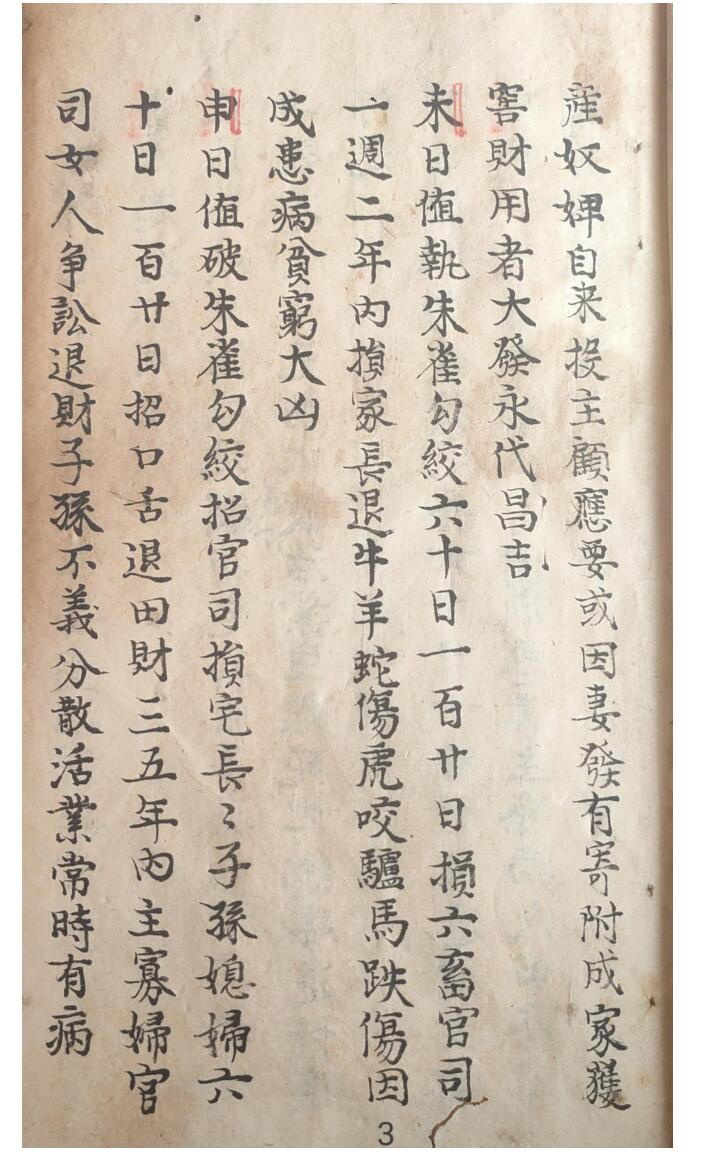 產奴婢自来投主顧應要或因妻發有寄附成家獲
窖財用者大發永代昌吉
未日值執朱雀勾絞六十日一百廿日損六畜官司
一週二年内損家長退牛羊蛇傷虎咬驢馬跌傷因
成患病貧窮大凶
申日值破朱雀勾絞招官司損宅長〻子孫媳婦六
十日一百廿日招口舌退田財三五年内主寡婦官
司女人争訟退財子孫不義分散活業常時有病
3